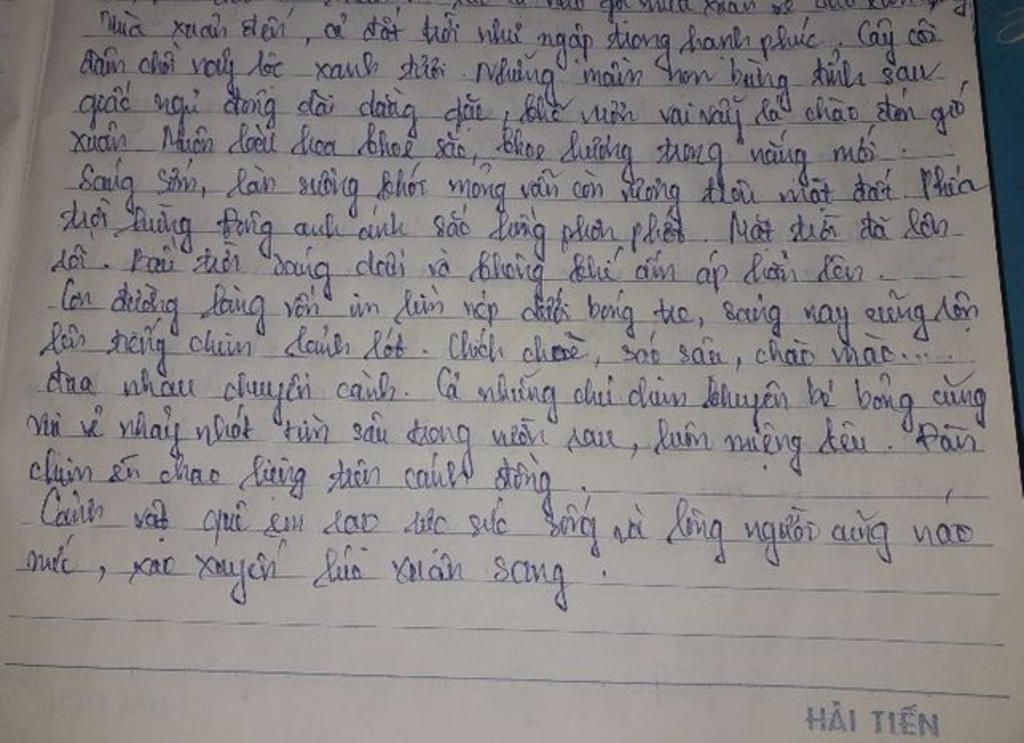 mùa xuân về
mùa xuân đến, cả đất trời như ngập trong hạnh phúc. Cây cối
đâm chồi nảy lộc xanh tươi. Những mầm non bừng tỉnh sau
giấc ngủ đông dài dằng dặc, khẽ vươn vai vẫy lá chào đón gió
xuân. Muôn loài hoa khoe sắc, khoe hương trong nắng mới.
Sáng sớm, làn sương khói mỏng vẫn còn vương trên mặt đất. Phía
trời hừng đông anh ánh sắc hồng phơn phớt. Mặt trời đã lên
rồi. Bầu trời sáng dần và không khí ấm áp hẳn lên.
Con đường làng vốn im lìm nép dưới bóng tre, sáng nay cũng rộn
lên tiếng chim lảnh lót. Chích choè, sáo sậu, chào mào....
đua nhau chuyền cành. Cả những chú chim khuyên bé bỏng cũng
vui vẻ nhảy nhót tìm sâu trong vườn rau, luôn miệng kêu. Đàn
chim én chao liệng trên cánh đồng.
Cảnh vật quê em rạo rực sức sống và lòng người cũng náo
nức, xao xuyến lúc xuân sang.
HẢI TIẾN